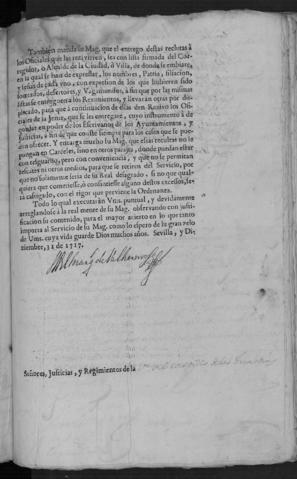 Tambien manda su Mag. que el entrego destas reclutas à
los Oficiales que las recivieren, sea con lista firmada del Cor-
regidor, o Alcalde de la Ciudad, ò Villa, de donde se embiare,
en la qual se han de expressar, los nombres, Patria, filiacion,
y señas de cada vno, con expression de los que huviere
sorteados, desertores, y Vagamundos, à fin que por las mismas
listas se entreguen à los Regimientos, y llevaràn otras por
plicado, para que à continuacion de ellas den Recivo los Ofi-
ciales de la Jente, que se les entregare, cuyo instrumento à de
quedar en poder de los Escrivanos de los Ayuntamientos, y
Justicias, à fin de que conste siempre para los casos que se pue-
dan ofrecer. Y encarga mucho su Mag. que estas reclutas no se
pongan en Carceles, sino en otros parajes, donde puedan estar
con resguardo, pero con conveniencia, y que no se permitan
en otros medios, para que se retiren del Servicio, por
que no solamente seria de su Real desagrado, si no que qual-
quiera que cometiesse, ò consintiesse alguno destos excessos, se-
rà castigado, con el rigor que previene la Ordenanza.
Todo lo qual executaràn Vms. puntual, y devidamente
arreglandose à la real mente de su Mag. observando con justi-
ficacion su contenido, para el mayor acierto en lo que tanto
importa al Servicio de su Mag. como lo espero de la gran zelo
de Vms. cuya vida guarde Dios muchos años. Sevilla, y Di-
ziembre, 31 de 1717.
Señores, Justicias, y Regimientos de la